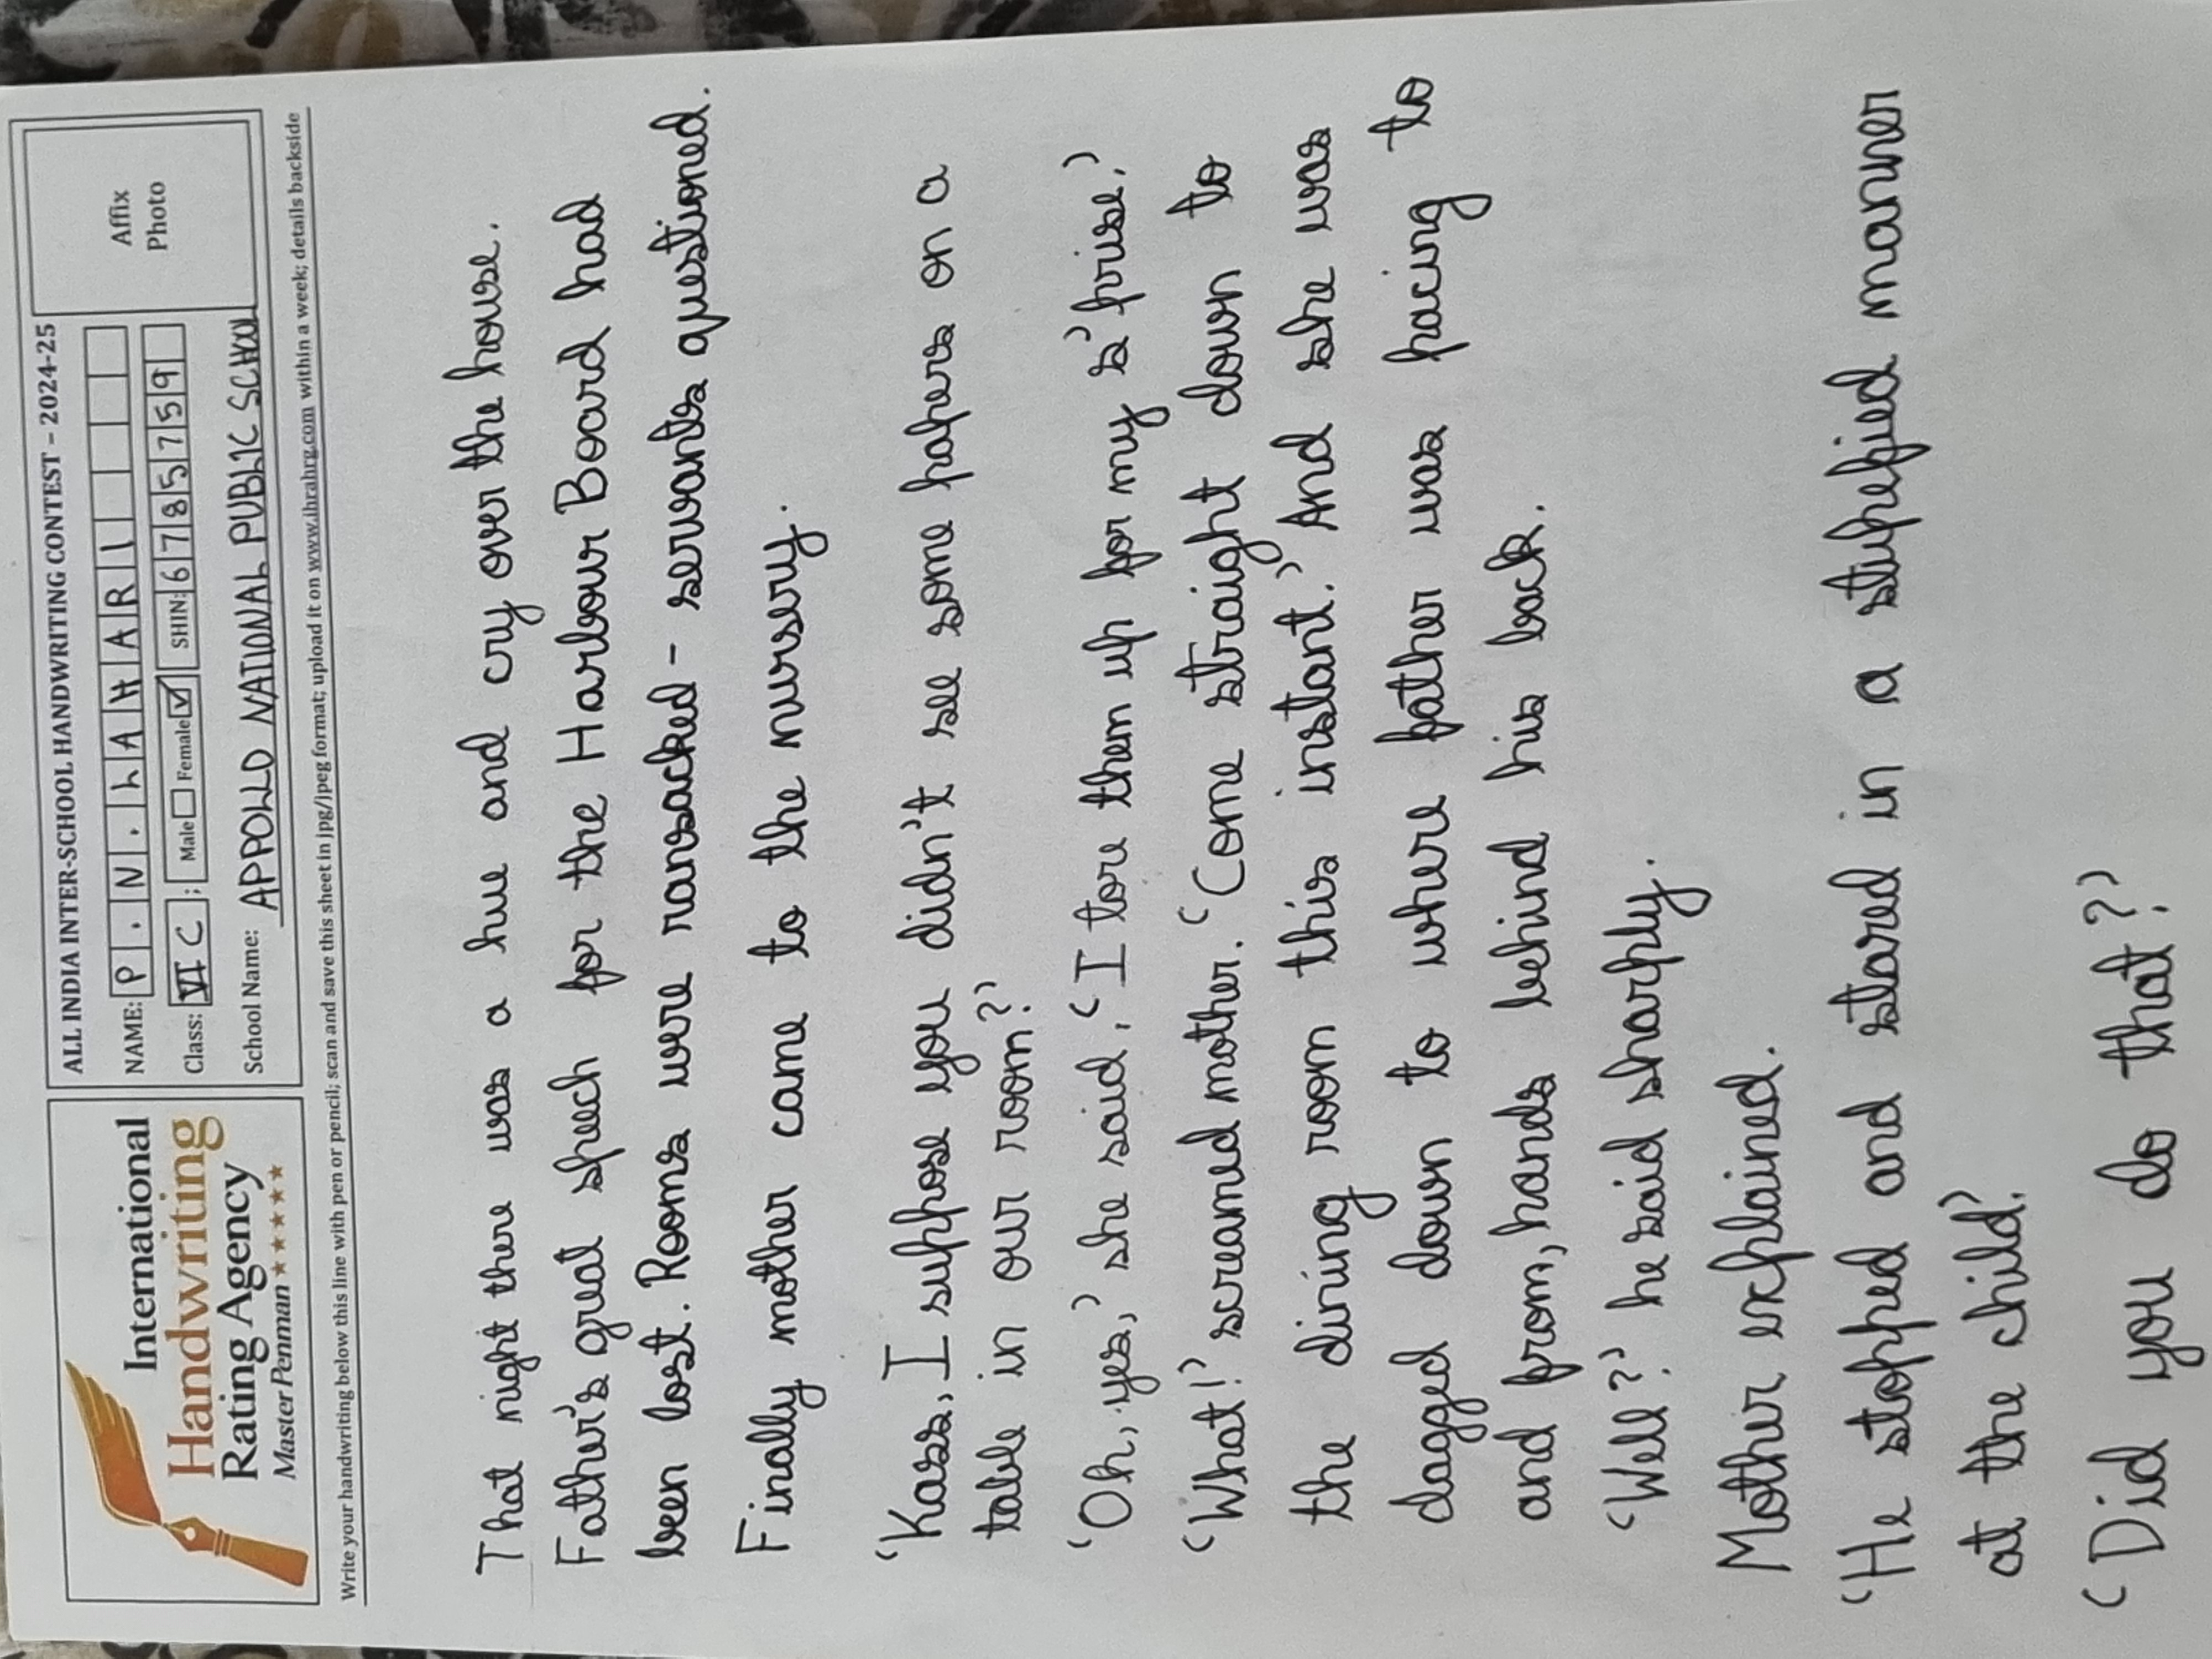 International
Handwriting
Rating Agency
Master Penman ★★★★★★
ALL INDIA INTER-SCHOOL HANDWRITING CONTEST - 2024-25
NAME: P . N . L A H A R I
Class: VI C ; Male Female ✓ SHIN: 6 7 8 5 7 5 9
School Name: APPOLLO NATIONAL PUBLIC SCHOOL
Affix
Photo
Write your handwriting below this line with pen or pencil; scan and save this sheet in jpg/jpeg format; upload it on www.ihrahrg.com within a week; details backside
That night there was a hue and cry over the house.
Father's great speech for the Harbour Board had
been lost. Rooms were ransacked - servants questioned.
Finally mother came to the nursery.
'Kass, I suppose you didn't see some papers on a
table in our room?'
'Oh, yes,' she said, 'I tore them up for my s'prise.'
'What!' screamed mother. 'Come straight down to
the dining room this instant.' And she was
dagged down to where father was pacing to
and from, hands behind his back.
'Well?' he said sharply.
Mother explained.
'He stopped and stared in a stupefied manner
at the child.'
'Did you do that?'